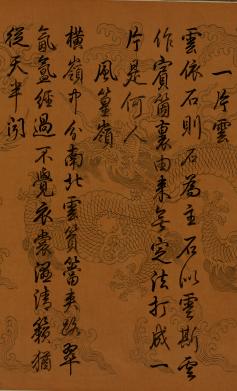 一片雲
雲依石則石為主石以雲斯雲
作賓箇裏由来無定法打成一
片是何人
風篁嶺
橫嶺中分南北雲篔簹夾路翠
氤氳經過不覺衣裳濕清籟猶
從天半聞